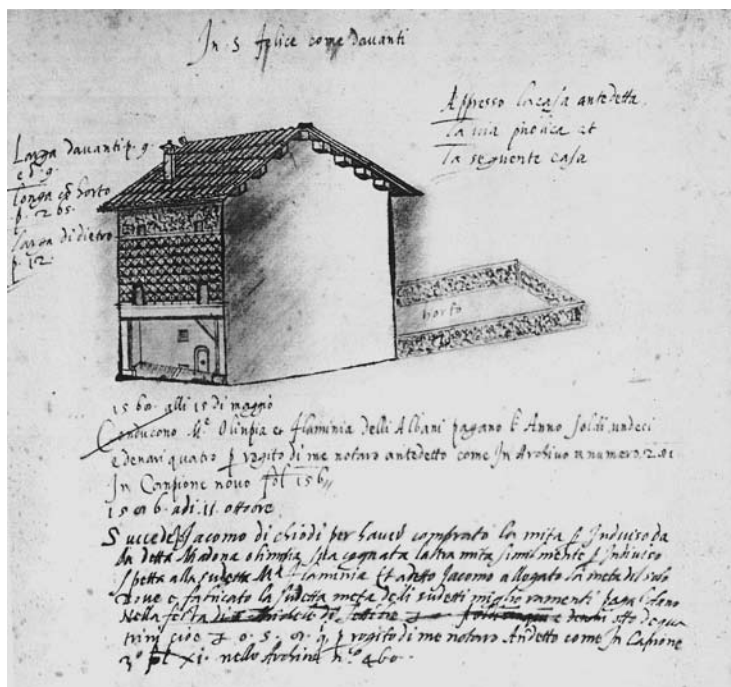 In S felice come davanti
Appresso la casa antedetta
la via publica et
la seguente casa
Larga davanti p. 9.
e d 9.
longa cō horto
p. 2 65.
larga di dietro
p. 12.
horto
alli 15 di maggio
Conducono M.ᵉ Olinpia et flaminia delli Albani pagano Anno soldi undeci
e denari quatro p rogito di me notaro antedetto come In Archivo numero
In Canpione novo fol 156
adi 11. ottore
Succede Jacomo di chiodi per haver comprato la mita p Indiviso da
da detta Madona olimpia sua cognata laltra mita similmente p Indiviso
spetta alla sudetta M.ᵃ flaminia Et a detto Jacomo allogato la meta del solo
dove e fabricato la sudetta meta deli sudetti miglioramenti paga lano
Nella festa di e denari otto de qua
trini cioe o. 5. p rogito di me notaro Andetto come In Canpione
3° fol XI. nello Archivi n.° 460.